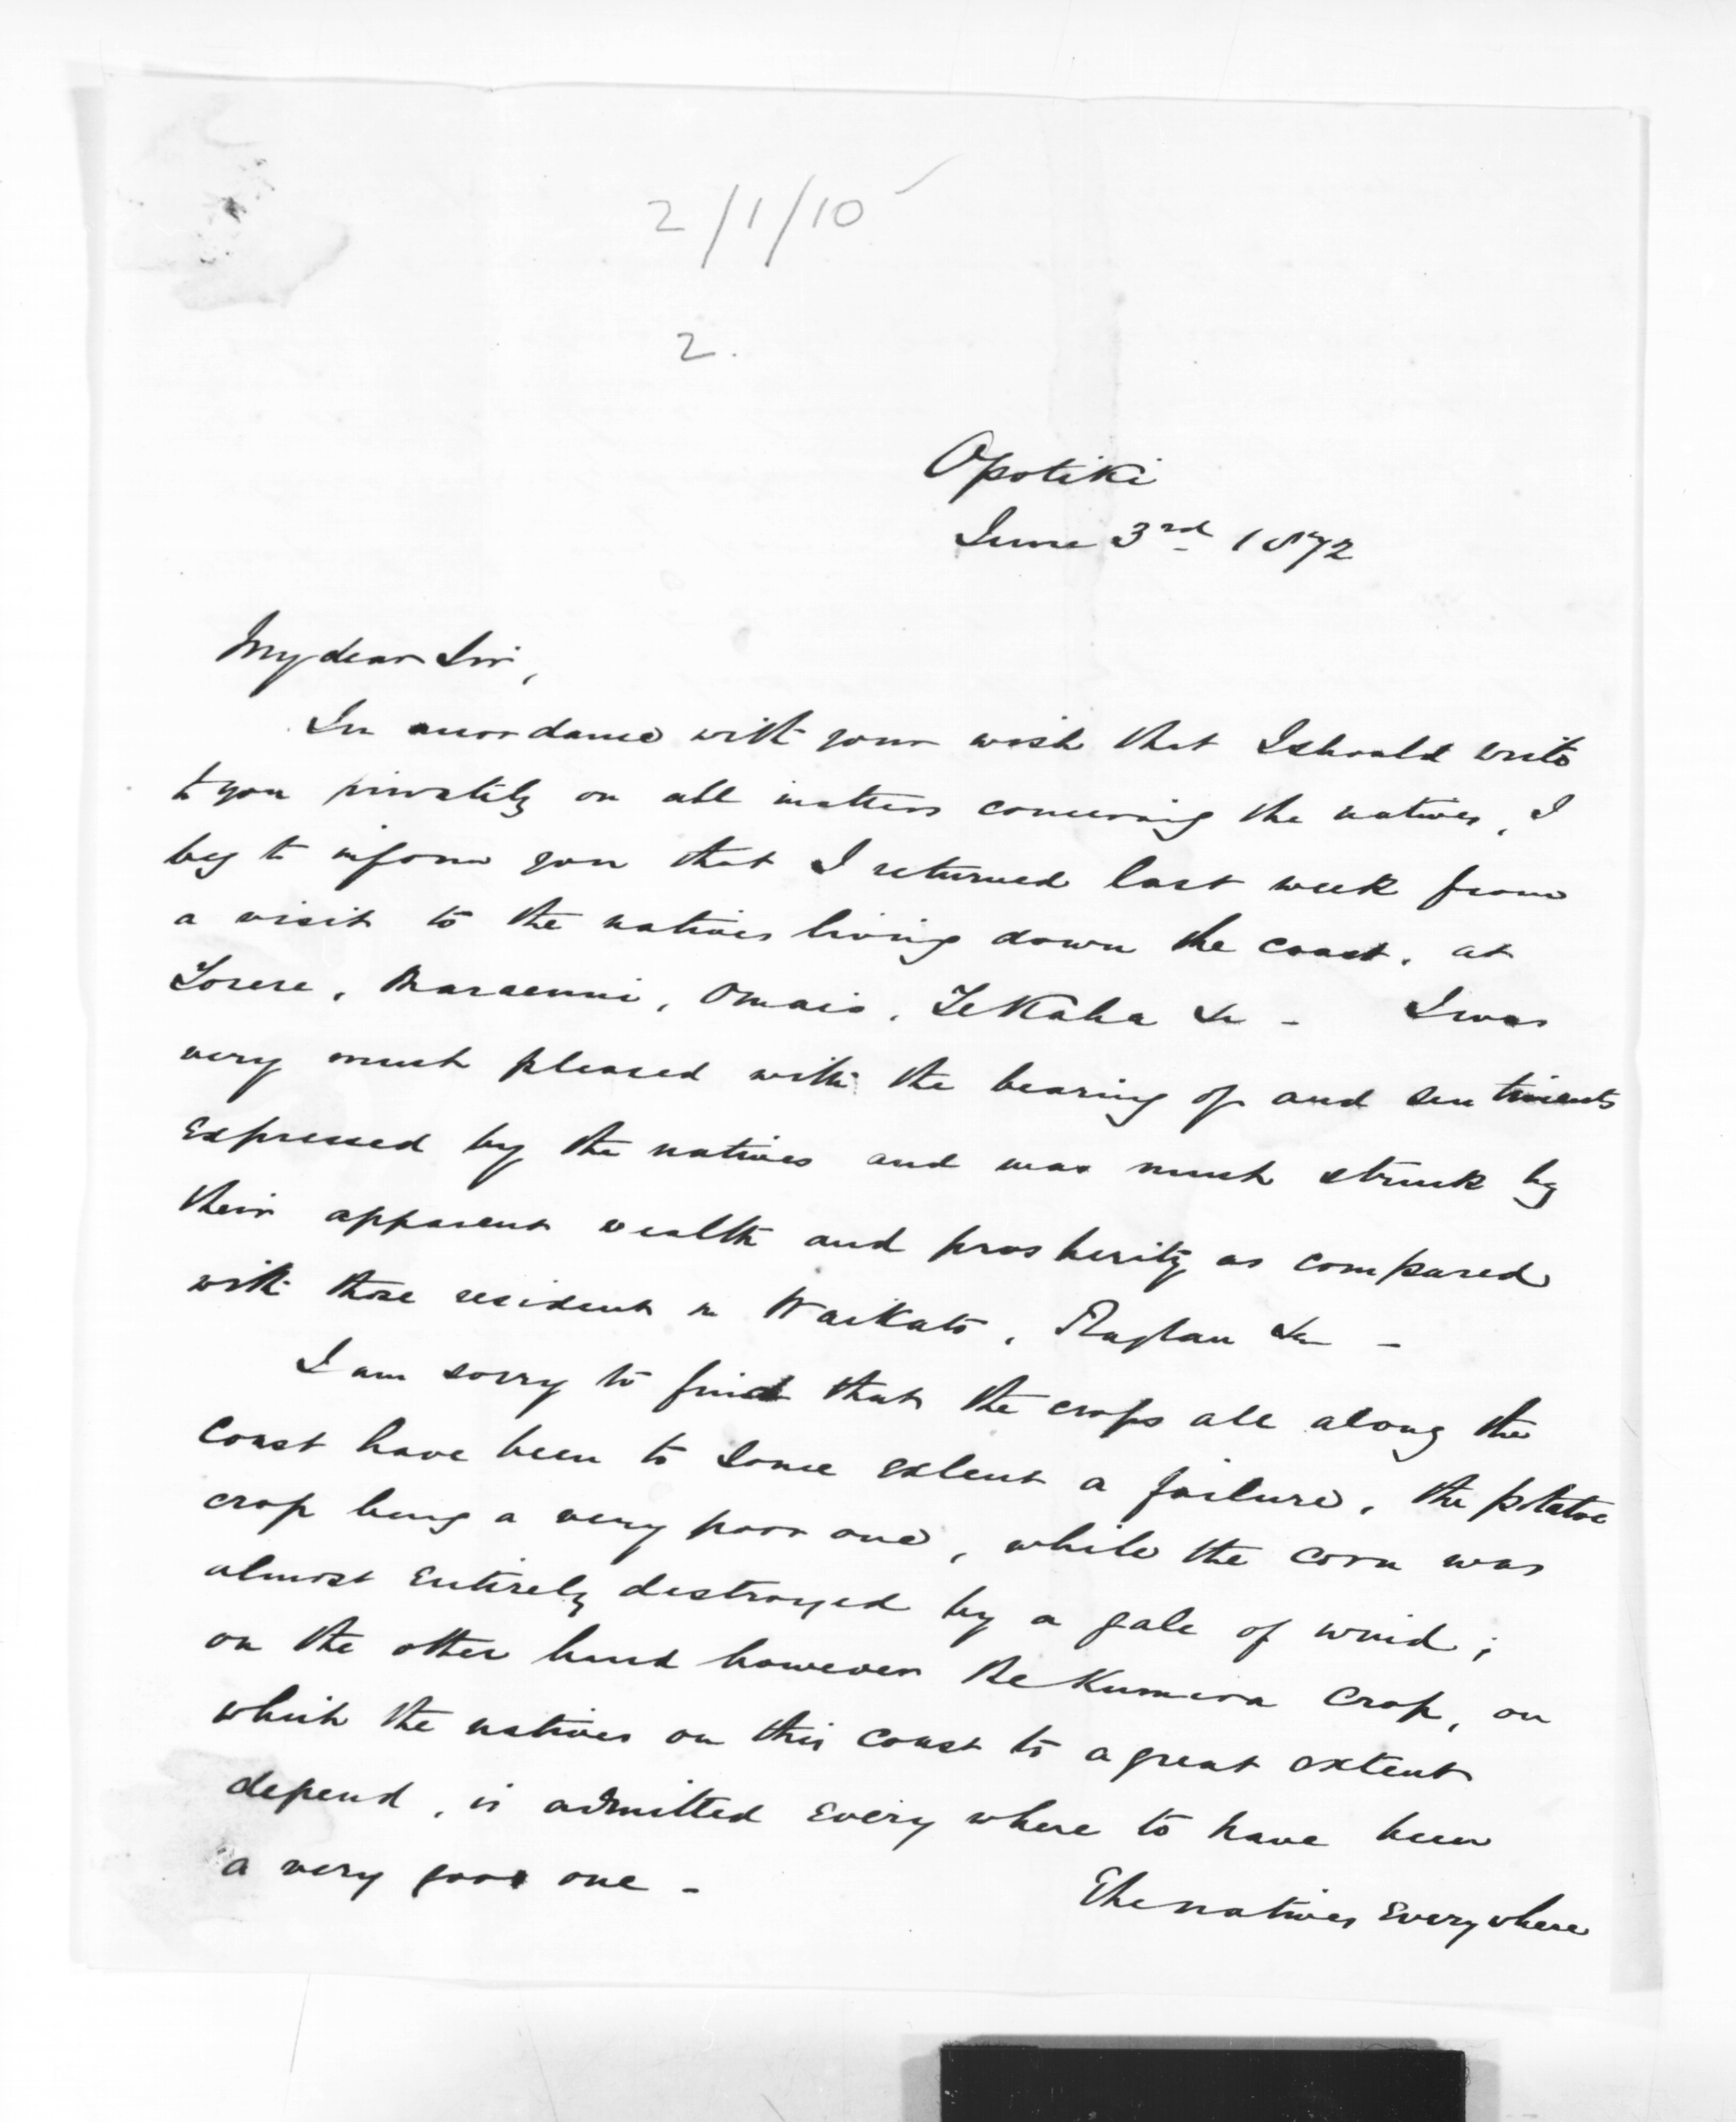 2/1/10
2.
Opotiki
June 3rd 1872
My dear Sir,
In accordance with your wish that I should write
to you privately on all matters concerning the natives, I
beg to inform you that I returned last week from
a visit to the natives living down the coast, at
Torere, Maraenui, Omaio, Te Kaha &c -   I was
very much pleased with the bearing of and sentiments
expressed by the natives and was much struck by
their apparent wealth and prosperity as compared
with those resident in Waikato, Raglan &c -
I am sorry to find that the crops all along the
coast have been to some extent a failure, the potatoe
crop being a very poor one, while the corn was
almost entirely destroyed by a gale of wind;
on the other hand however the Kumera crop, on
which the natives on this coast to a great extent
depend, is admitted every where to have been
a very good one -
The natives everywhere